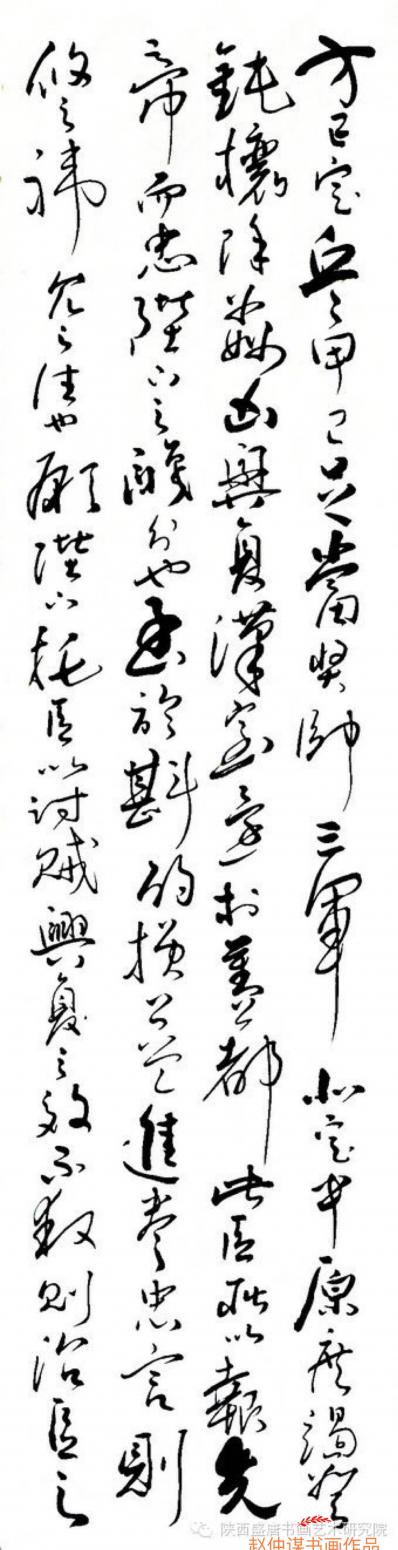 方已定兵甲已足當獎帥三軍北定中原庶竭駑
鈍攘除姦凶興復漢室還於舊都此臣所以報先
帝而忠陛下之職分也至於斟酌損益進盡忠言則
攸之禕允之任也願陛下托臣以討賊興復之效不效則治臣之
陕西盛唐书画艺术研究院
赵仲谋书画作品